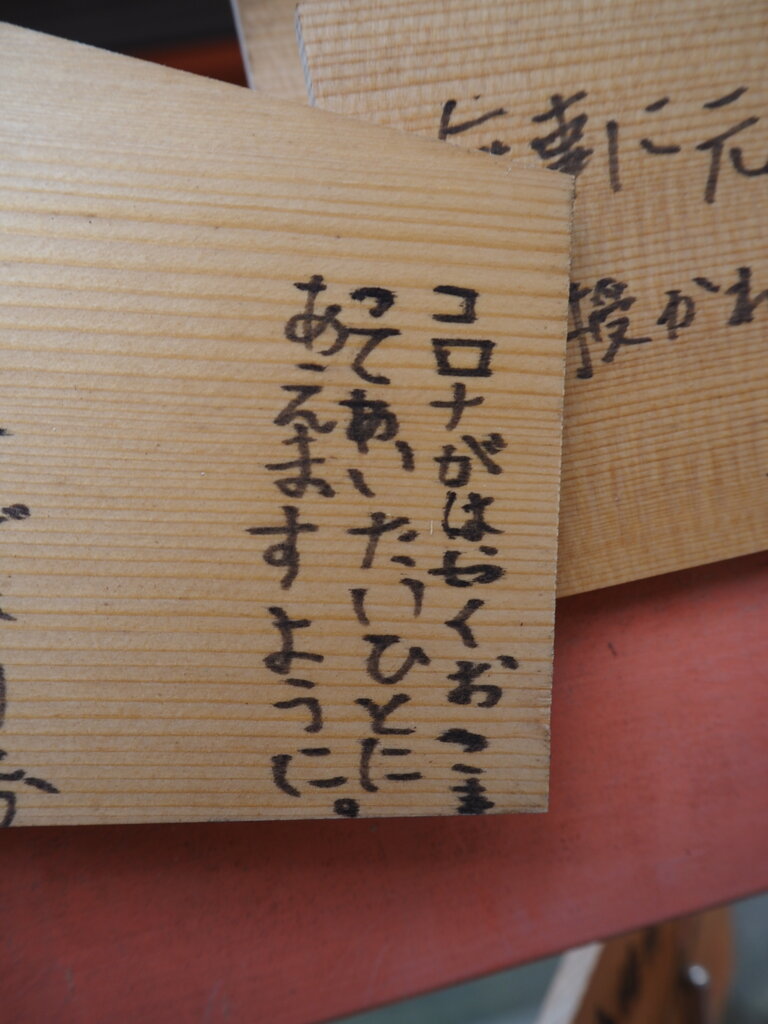 コロナがはやくおこま
ってあいたいひとに
あえますように。
に元
授かれ